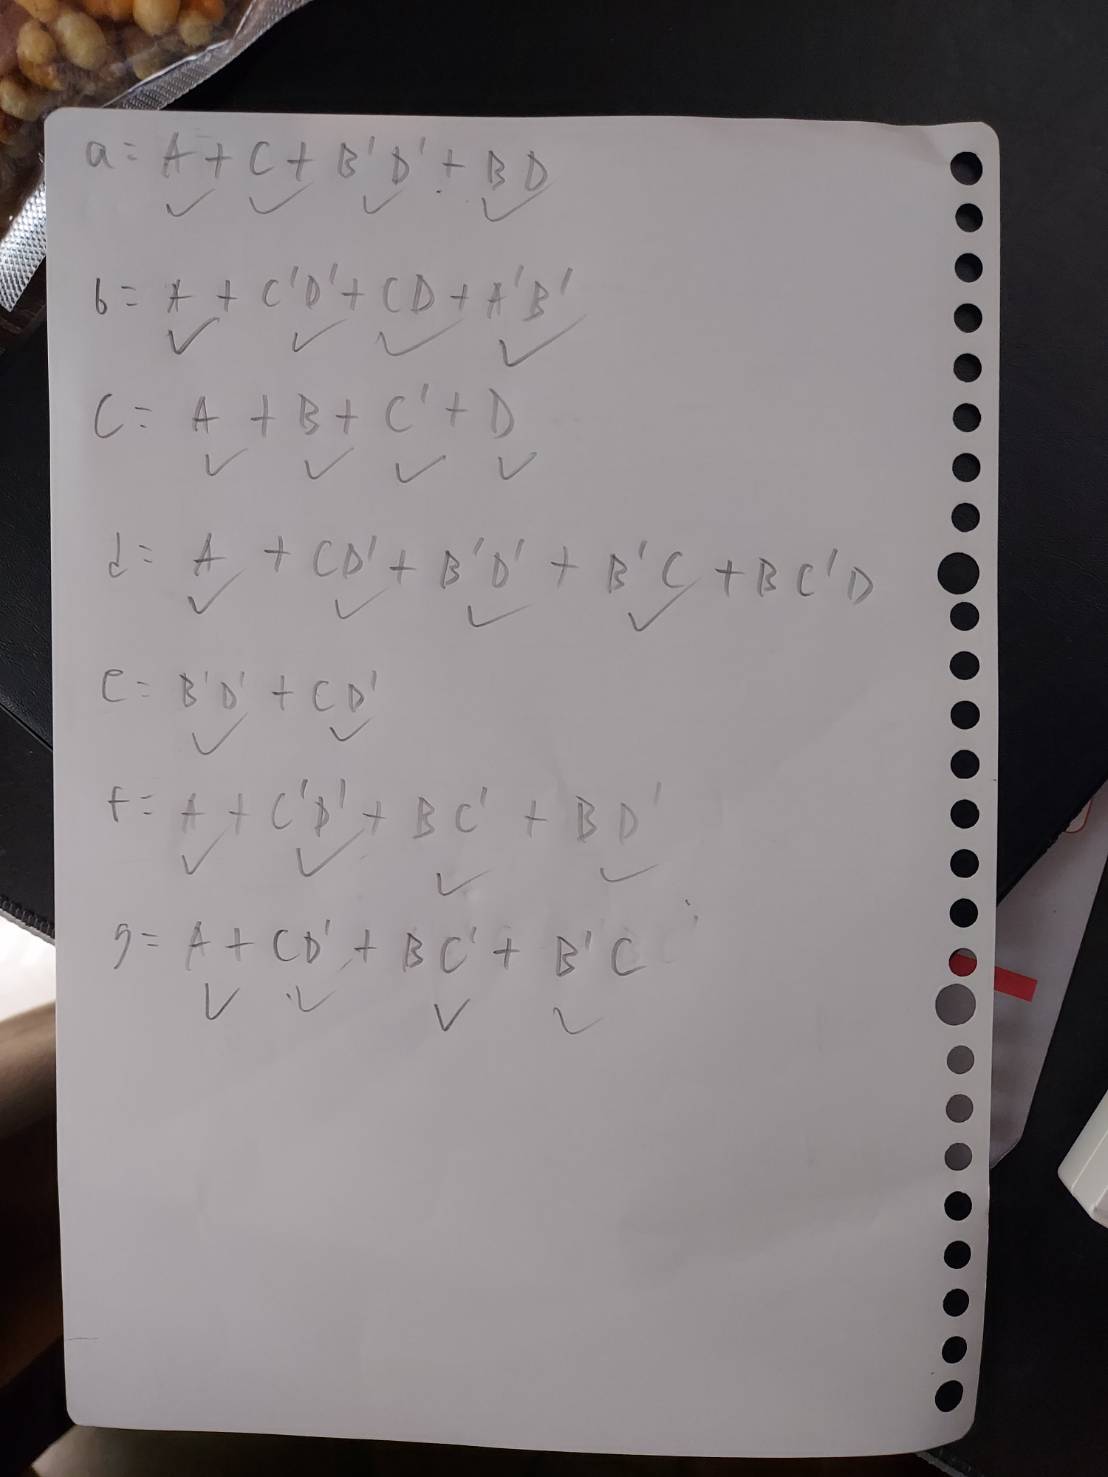 a = A + C + B'D' + BD
b = A + C'D' + CD + A'B'
C = A + B + C' + D
d = A + CD' + B'D' + B'C + BC'D
e = B'D' + CD'
f = A + C'D' + BC' + BD'
g = A + CD' + BC' + B'C